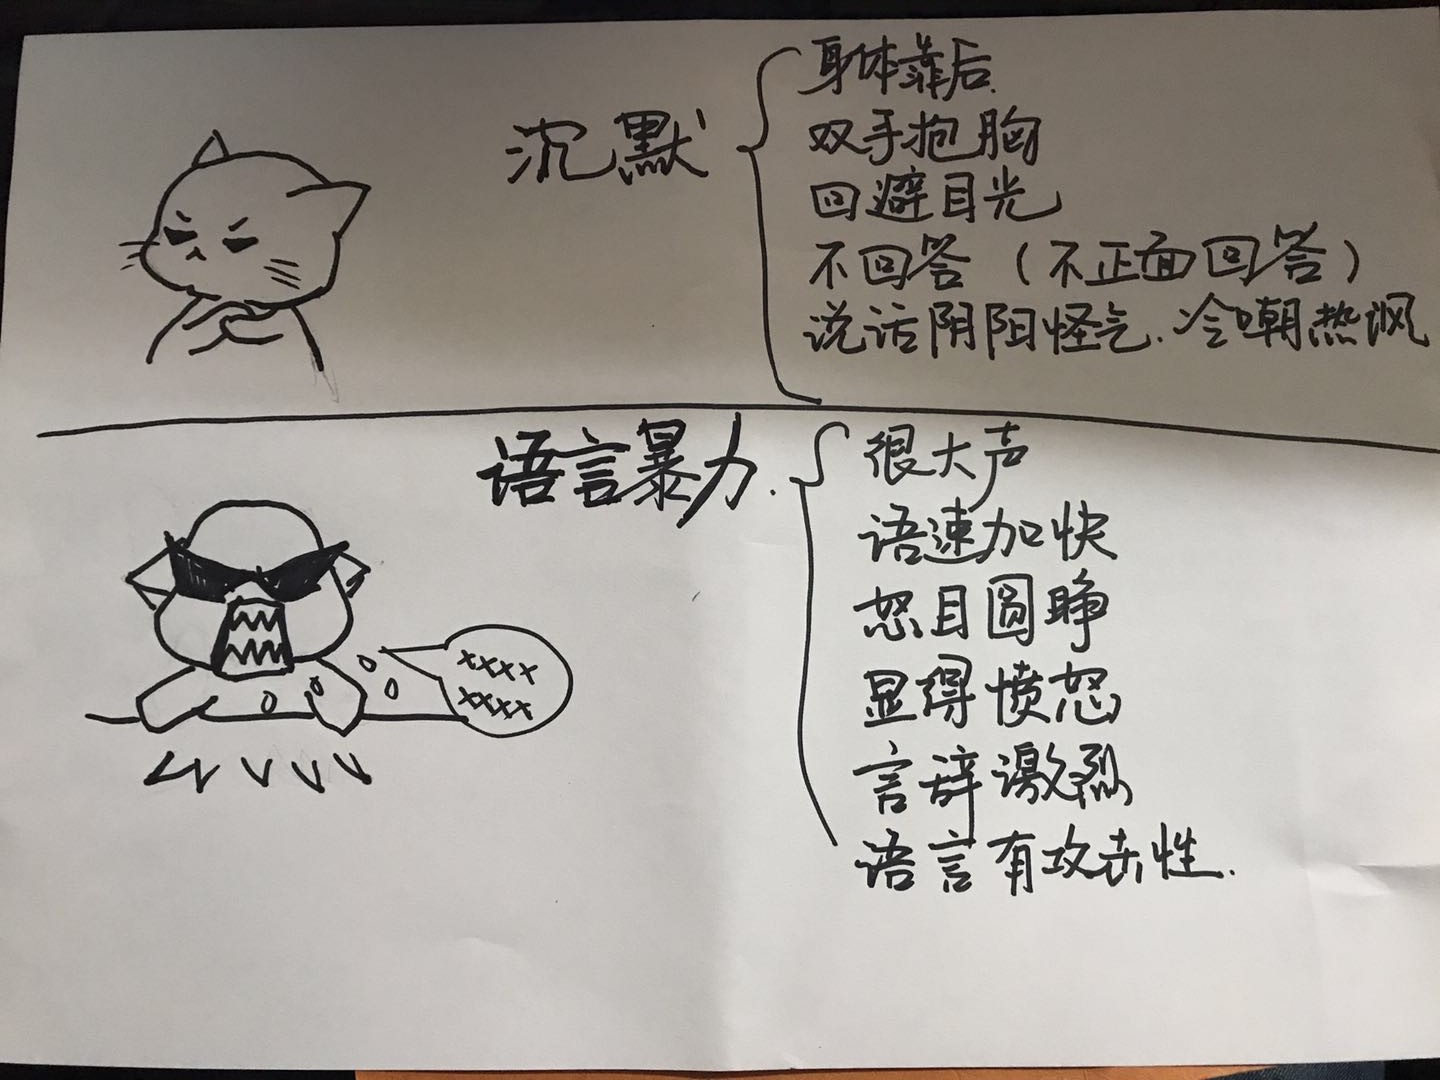 沉默
身体靠后.
双手抱胸
回避目光
不回答（不正面回答）
说话阴阳怪气.冷嘲热讽
语言暴力.
很大声
语速加快
怒目圆睁
显得愤怒
言辞激烈
语言有攻击性.
xxxx
xxxx